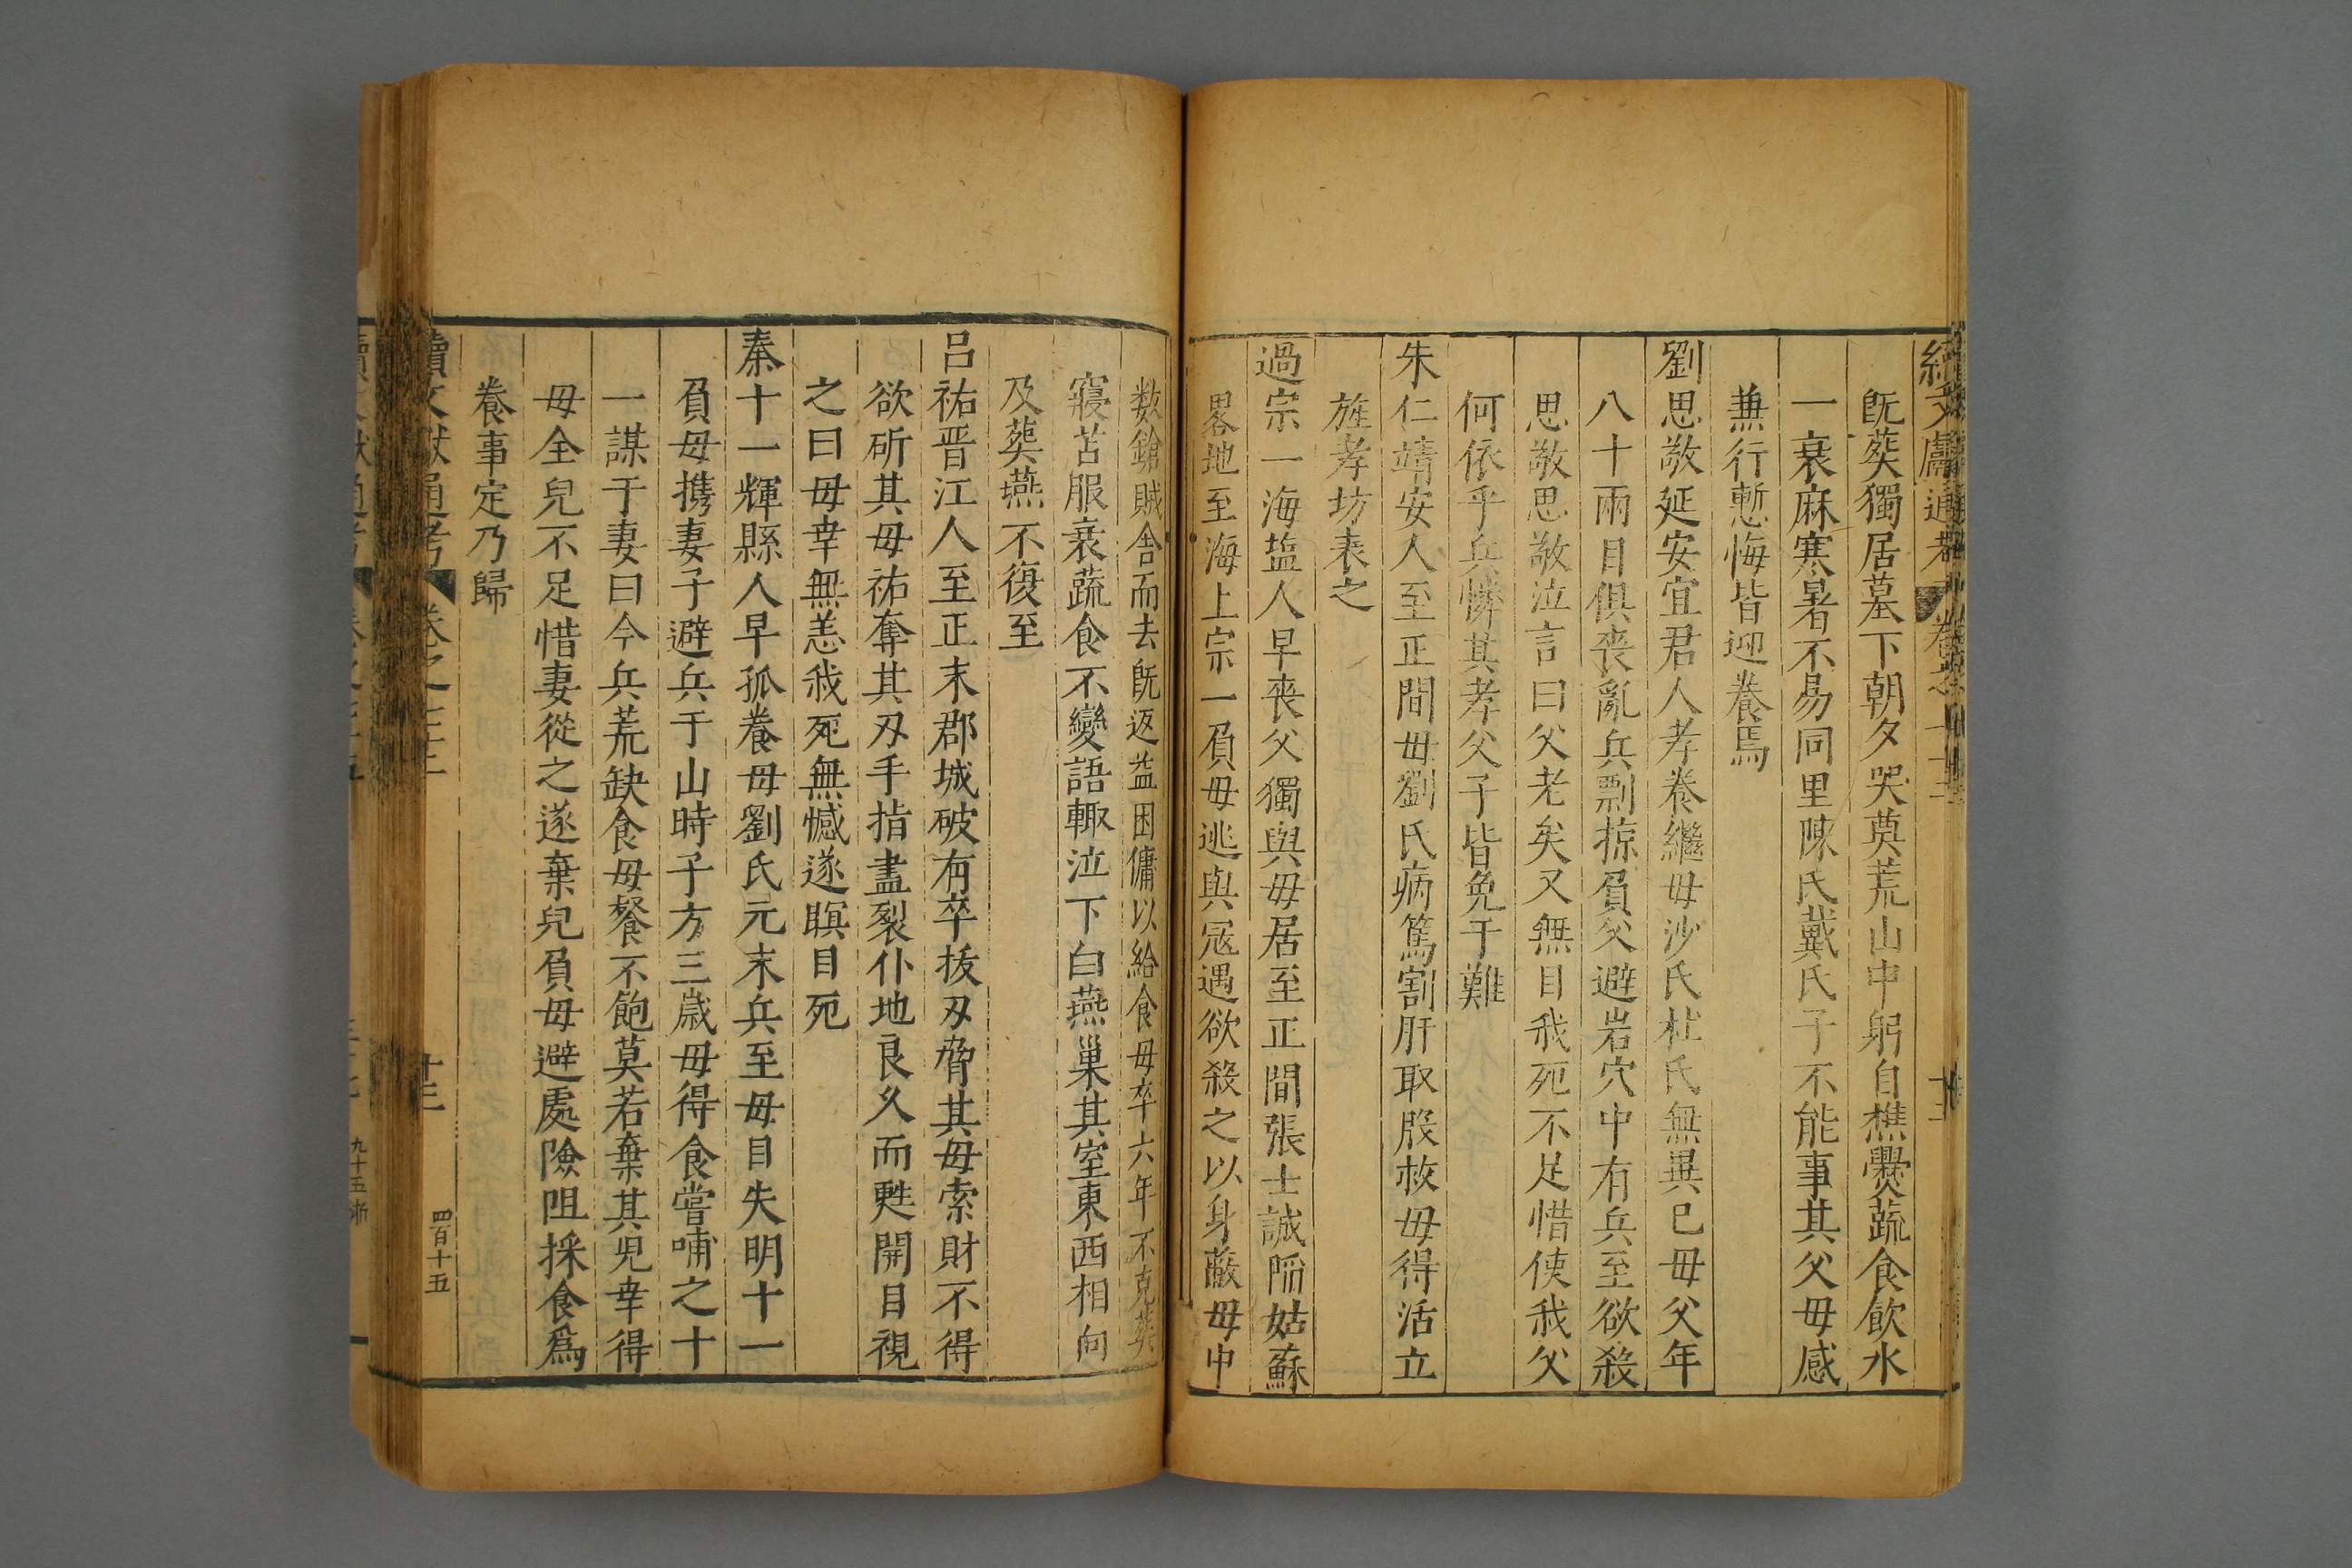 續文獻通考
既葬獨居墓下朝夕哭奠荒山中躬自樵爨蔬食飲水
一衰麻寒暑不易同里陳氏戴氏子不能事其父母感
兼行慙悔皆迎養焉
劉思敬延安宜君人孝養繼母沙氏杜氏無異己母父年
八十兩目俱喪亂兵剽掠負父避岩穴中有兵至欲殺
思敬思敬泣言曰父老矣又無目我死不足惜使我父
何依乎兵憐其孝父子皆免于難
朱仁靖安人至正間母劉氏病篤割肝取股救母得活立
旌孝坊表之
過宗一海塩人早喪父獨與母居至正間張士誠陷姑蘇
畧地至海上宗一負母逃與冦遇欲殺之以身蔽母中
数鎗賊舍而去既返益困傭以給食母卒六年不克葬
寢苫服衰蔬食不變語輙泣下白燕巢其室東西相向
及葬燕不復至
吕祐晋江人至正末郡城破有卒拔刄脅其母索財不得
欲斫其母祐奪其刄手指盡裂仆地良久而甦開目視
之曰母幸無恙我死無憾遂瞑目死
秦十一輝縣人早孤養母劉氏元末兵至母目失明十一
負母携妻子避兵于山時子方三歲母得食嘗哺之十
一謀于妻曰今兵荒缺食母餐不飽莫若棄其児幸得
母全兒不足惜妻從之遂棄兒負母避處險阻採食爲
養事定乃歸
續文獻通考 卷之七十三 十三 四百十五
九十五